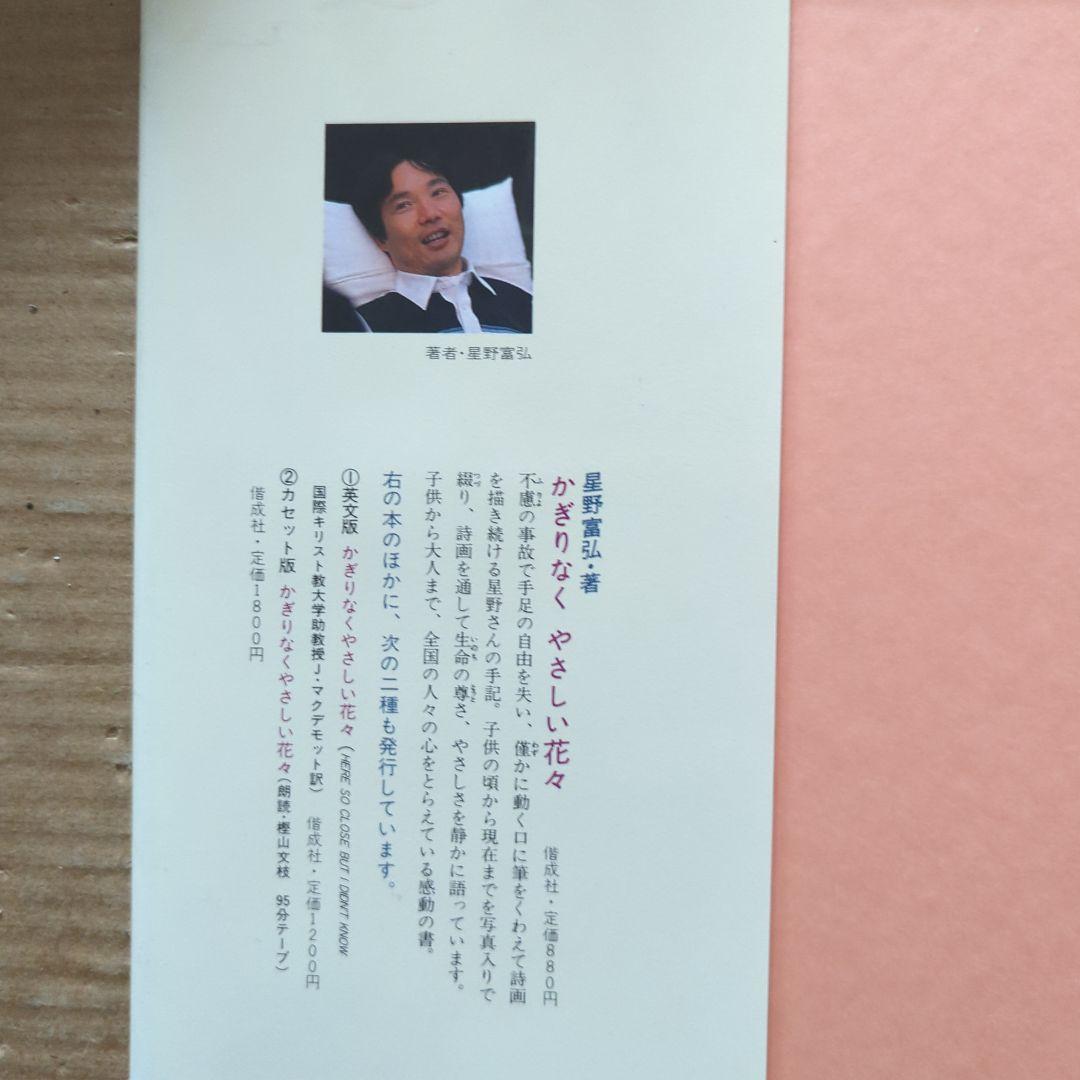 著者・星野富弘
星野富弘・著
かぎりなく やさしい花々
偕成社・定価880円
不慮の事故で手足の自由を失い、僅かに動く口に筆をくわえて詩画
を描き続ける星野さんの手記。子供の頃から現在までを写真入りで
綴り、詩画を通して生命の尊さ、やさしさを静かに語っています。
子供から大人まで、全国の人々の心をとらえている感動の書。
右の本のほかに、次の二種も発行しています。
①英文版 かぎりなくやさしい花々(HERE SO CLOSE BUT I DIDN'T KNOW
国際キリスト教大学助教授J・マクデモット訳) 偕成社・定価1200円
②カセット版 かぎりなくやさしい花々(朗読・樫山文枝 95分テープ)
偕成社・定価1800円